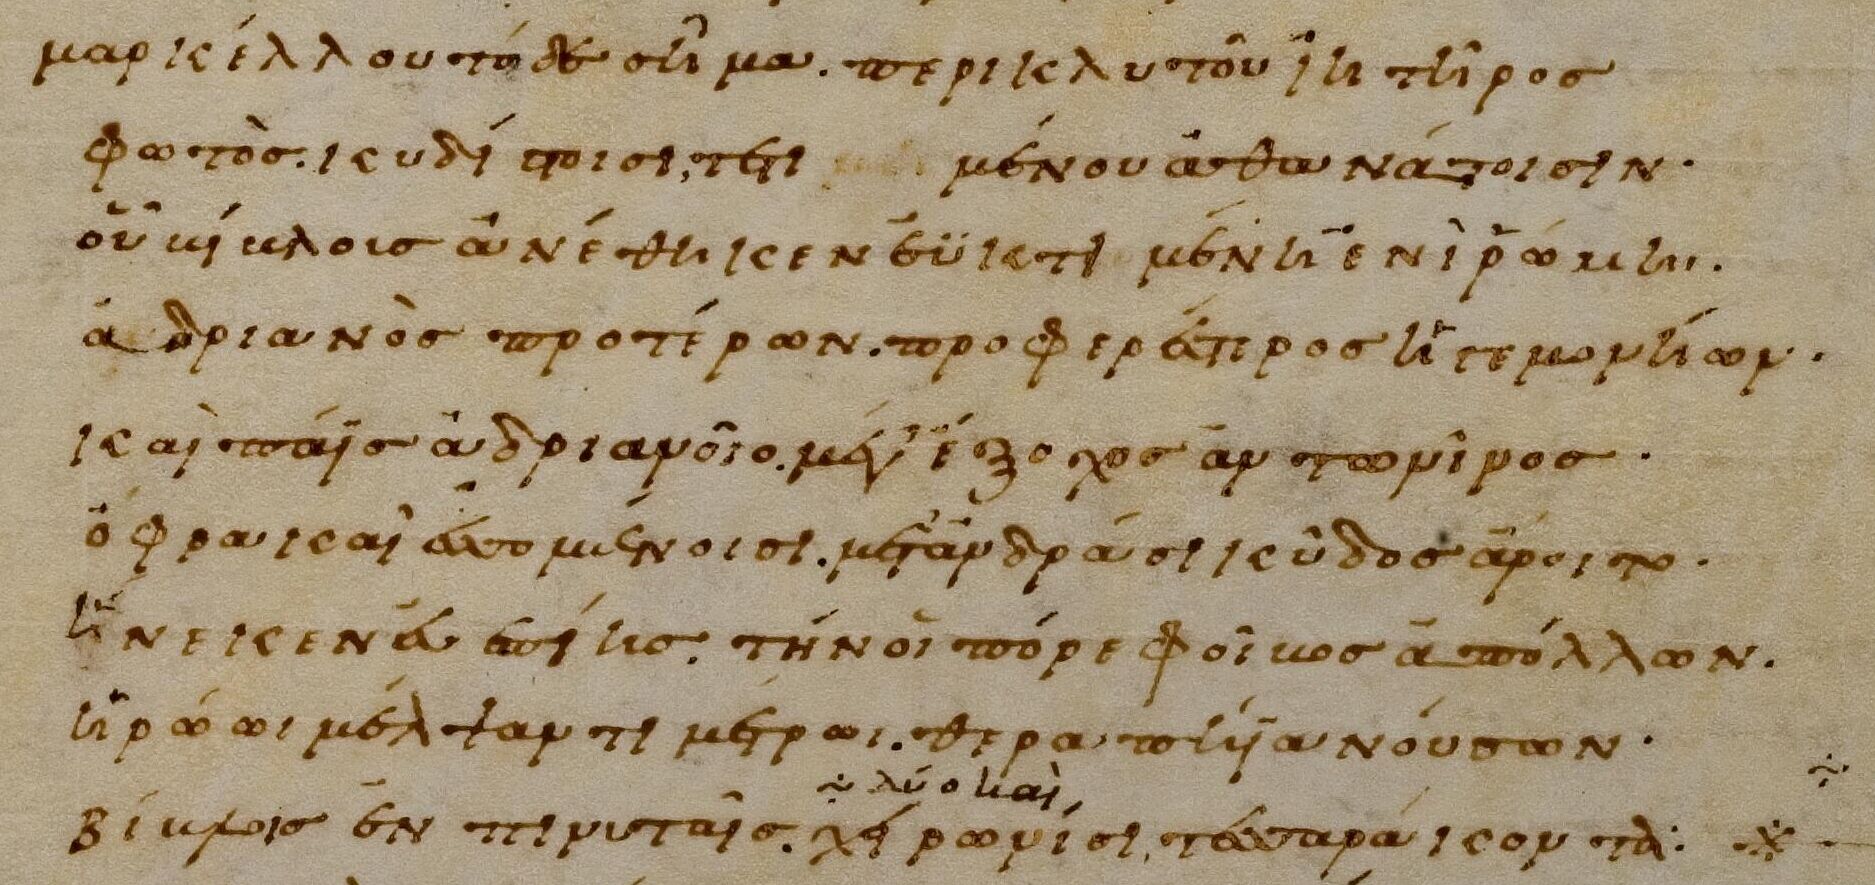 μαρκέλλου τόδε σῆμα. περικλυτοῦ ἰητῆρος
φωτὸς. κυδίστοισι, τετι μένου ἀθανάτοισιν.
οὗ βίβλοις ἀνέθηκεν ἐϋκτι μένηι ἐνὶ ῥώμηι.
ἀδριανὸς προτέρων. προφερέστερος ἡγεμονήων.
καὶ πάϊς ἀδριανοῖο. μέγ' ἔξοχος ἀντωνῖνος.
ὄφρα καὶ ἑσσομένοισι. μετ' ἀνδράσι κῦδος ἄροιτο.
εἵνεκεν εὐεπίης. τήν οἱ πόρε φοῖβος ἀπόλλων.
ἡρώωι μέλψαντι μέτρωι. θεραπήϊα νούσων.
δύο καὶ
βίβλοις ἐν πινυταῖς. χειρωνίσι, τεσσαράκοντα: